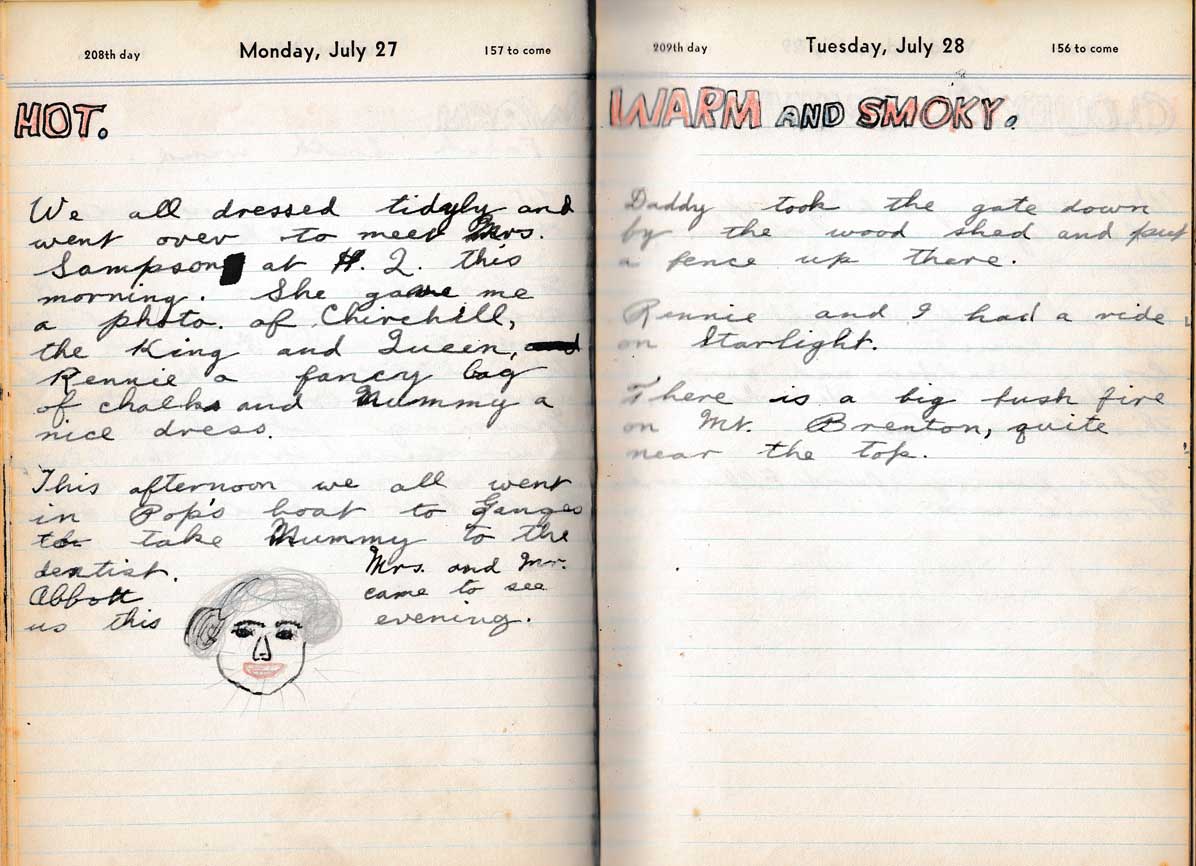 208th day Monday, July 27 157 to come
HOT.
We all dressed tidyly and
went over to meet Mrs.
Sampson at H. Q. this
morning. She gave me
a photo. of Chirchill,
the King and Queen, and
Rennie a fancy bag
of chalks and Mummy a
nice dress.
This afternoon we all went
in Pop's boat to Ganges
to take Mummy to the
dentist. Mrs. and Mr.
Abbott came to see
us this evening.
209th day Tuesday, July 28 156 to come
WARM AND SMOKY.
Daddy took the gate down
by the wood shed and put
a fence up there.
Rennie and I had a ride
on Starlight.
There is a big bush fire
on Mt. Brenton, quite
near the top.